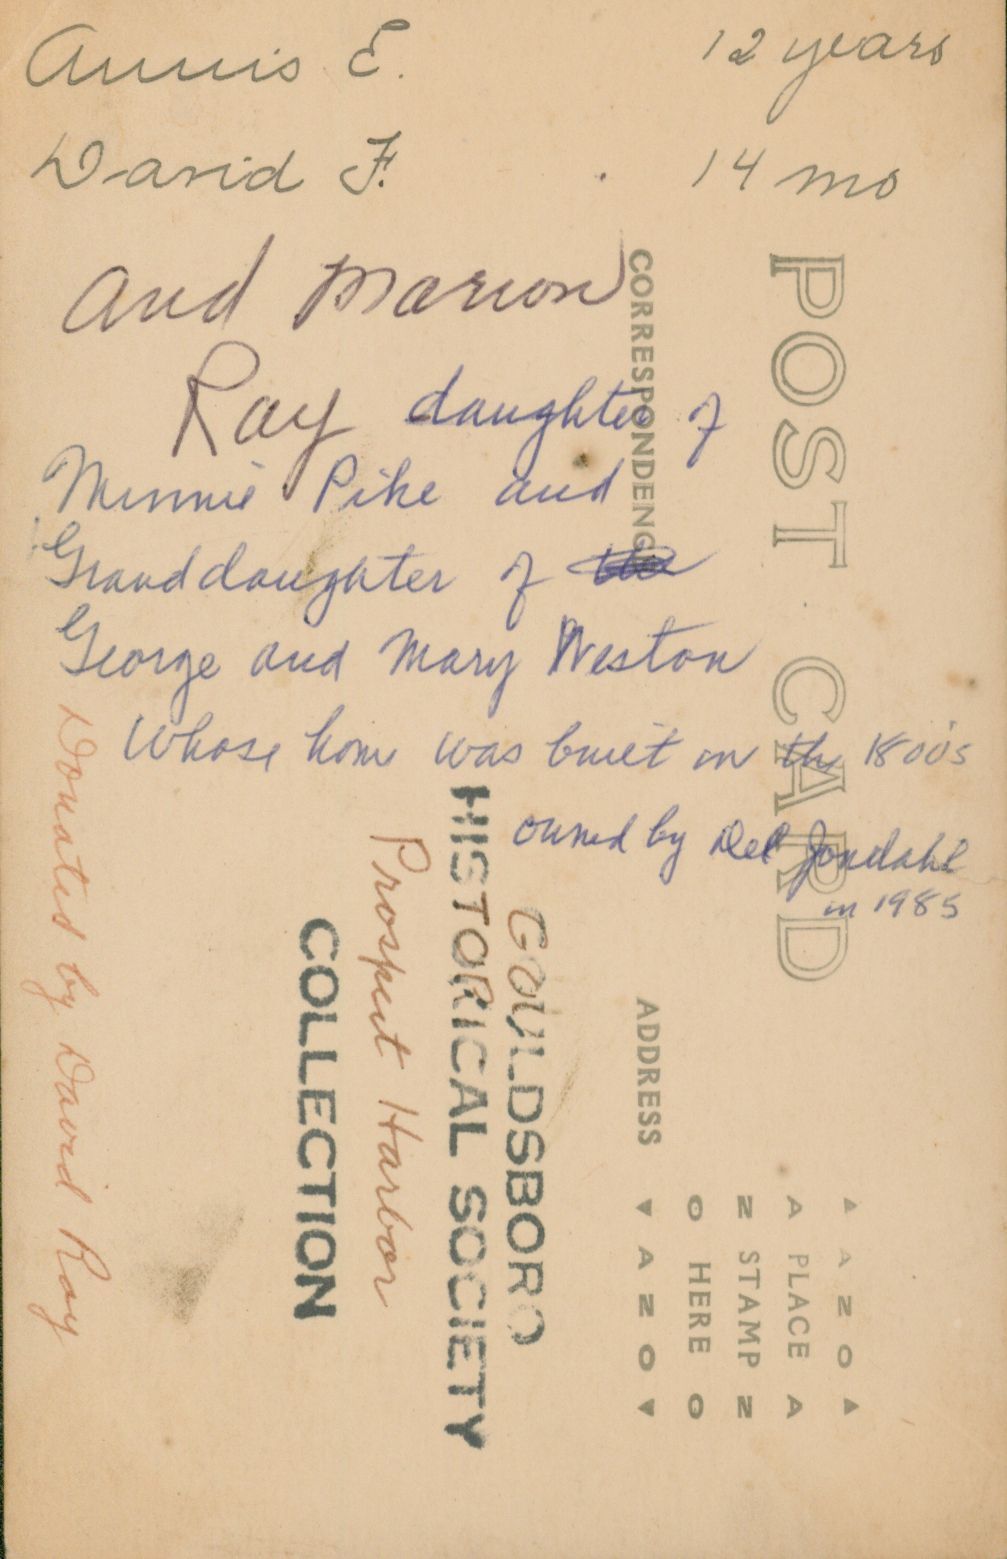 Annis E. 12 years
David F. 14 mo
and Marion
Ray daughter of
Minnie Pike and
Granddaughter of the
George and Mary Weston
Whose home was built in the 1800's
owned by Del Jondahl
in 1985
POST CARD
CORRESPONDENCE
ADDRESS
AZO
A PLACE A
Z STAMP Z
O HERE O
AZO
GOULDSBORO
HISTORICAL SOCIETY
Prospect Harbor
COLLECTION
Donated by David Ray